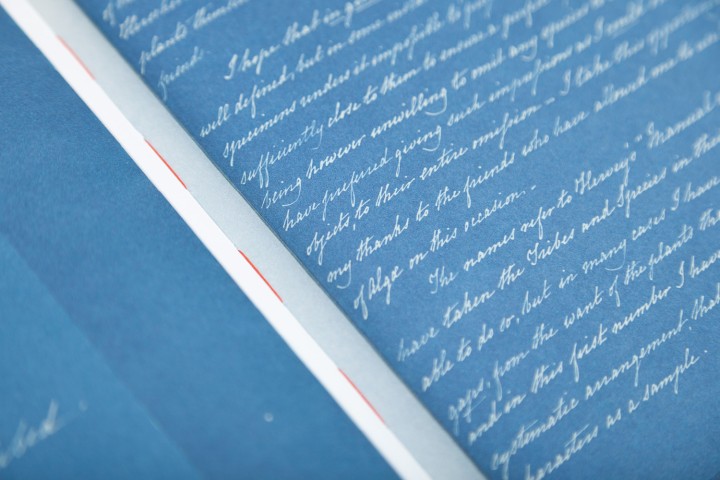 of the
themselves
plants themselves
friends.
I hope that in
well defined, but in some
specimens renders it impossible to
sufficiently close to them to ensure a
being however unwilling to omit any species
have preferred giving such impressions as I
objects, to their entire omission. — I take this
my thanks to the friends who have allowed me to
of Algæ on this occasion. —
The names refer to "Harvey's "Manual
have taken the Tribes and Species in their
able to do so, but in many cases I have
gaps, from the want of the plants that
and in this first number I have
systematic arrangement, that
characters as a sample.